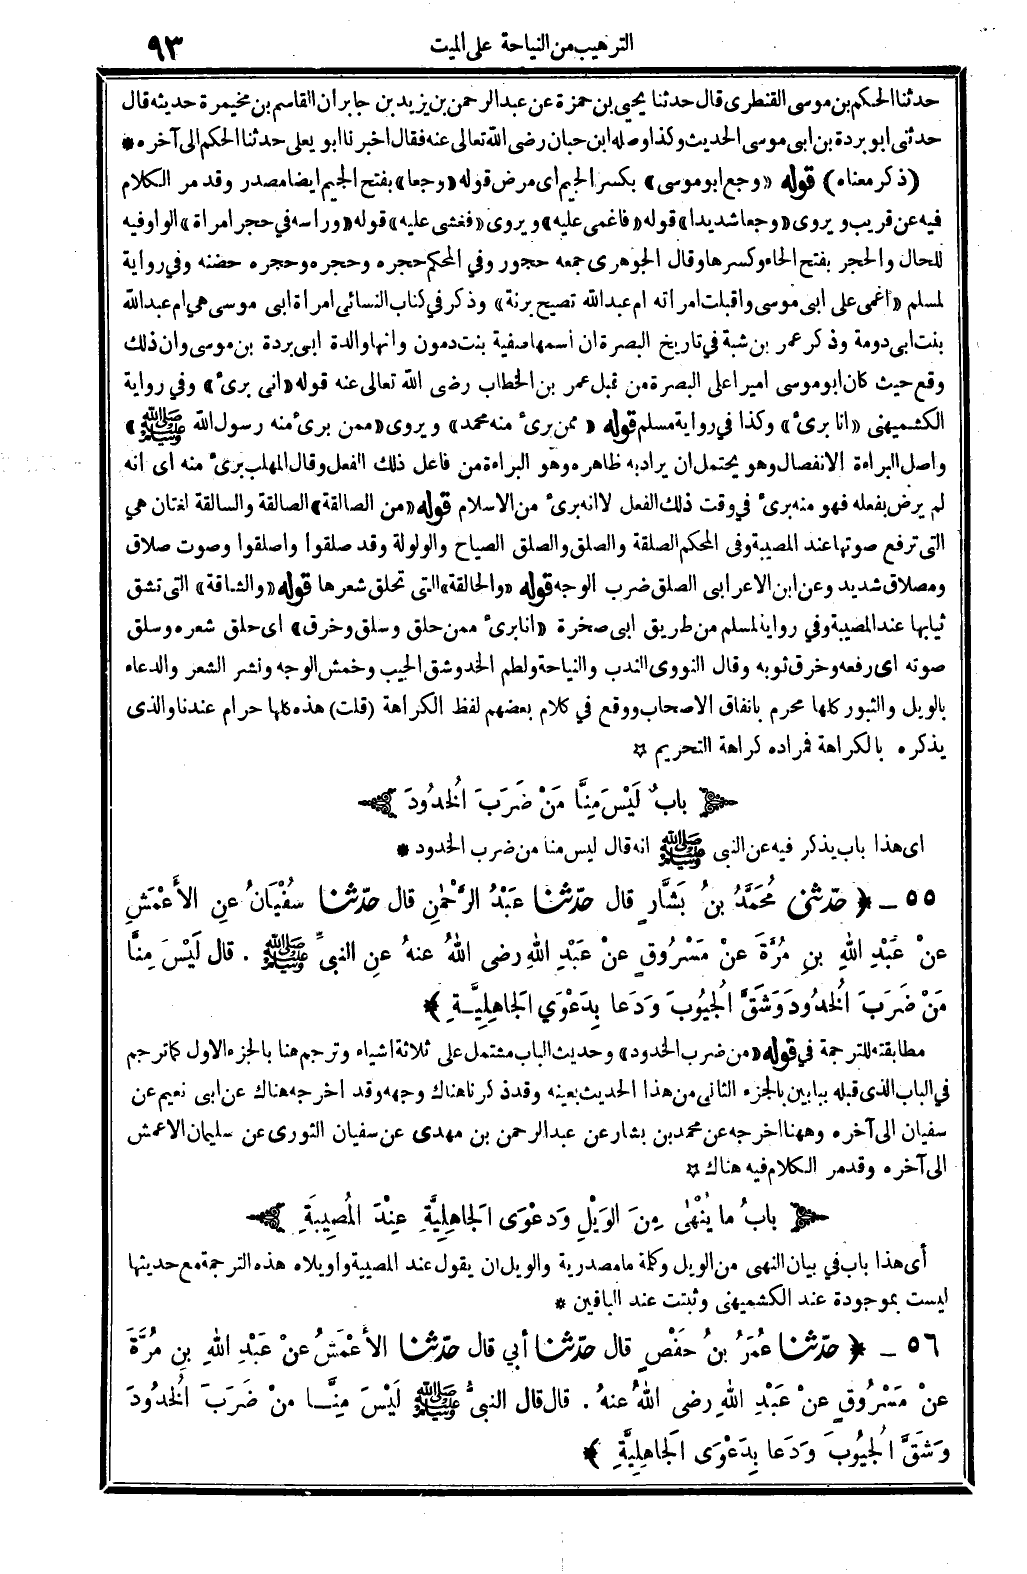 الترهيب من النياحة على الميت
٩٣
حدثنا الحكم بن موسى القنطرى قال حدثنا يحيى بن حمزة عن عبد الرحمن بن يزيد بن جابر ان القاسم بن مخيمرة حديثه قال
حدثنى ابو بردة بن ابى موسى الحديث وكذا وصله ابن حبان رضى الله تعالى عنه فقال اخبرنا ابو يعلى حدثنا الحكم الى آخره *
(ذكر معناه) قوله «وجع ابو موسى» بكسر الجيم اى مرض قوله «وجعا» بفتح الجيم ايضا مصدر وقد مر الكلام
فيه عن قريب ويروى «وجعا شديدا» قوله «فاغمى عليه» ويروى «فغشى عليه» قوله «ورأسه في حجر امرأة» الواو فيه
للحال والحجر بفتح الحاء وكسرها وقال الجوهرى جمعه حجور وفي المحكم حجره وحجره وحجره حضنه وفي رواية
لمسلم «اغمى على ابى موسى واقبلت امراته ام عبد الله تصيح برنة» وذكر في كتاب النسائى امرأة ابى موسى هي ام عبد الله
بنت ابى دومة وذكر عمر بن شبة في تاريخ البصرة ان أسمها صفية بنت دمون وانها والدة ابى بردة بن موسى وان ذلك
وقع حيث كان ابو موسى اميرا على البصرة من قبل عمر بن الخطاب رضى الله تعالى عنه قوله «انى برىء» وفي رواية
الكشميهنى «انا برىء» وكذا في رواية مسلم قوله «ممن برىء منه محمد» ويروى «ممن برىء منه رسول الله ﷺ»
واصل البراءة الانفصال وهو يحتمل ان يراد به ظاهره وهو البراءة من فاعل ذلك الفعل وقال المهلب برىء منه اى انه
لم يرض بفعله فهو منه برىء في وقت ذلك الفعل لا انه برىء من الاسلام قوله «من الصالقة» الصالقة والسالقة لغتان هي
التى ترفع صوتها عند المصيبة وفى المحكم الصلقة والصلق والصلق الصياح والولولة وقد صلقوا واصلقوا وصوت صلاق
ومصلاق شديد وعن ابن الاعرابى الصلق ضرب الوجه قوله «والحالقة» التى تحلق شعرها قوله «والشاقة» التى تشق
ثيابها عند المصيبة وفي رواية لمسلم من طريق ابى صخرة «انا برىء ممن حلق وسلق وخرق» اى حلق شعره وسلق
صوته اى رفعه وخرق ثوبه وقال النووى الندب والنياحة ولطم الخد وشق الجيب وخمش الوجه ونشر الشعر والدعاء
بالويل والثبور كلها محرم باتفاق الاصحاب ووقع في كلام بعضهم لفظ الكراهة (قلت) هذه كلها حرام عندنا والذى
يذكره بالكراهة فمراده كراهة التحريم ☆
﴿ بابٌ لَيْسَ مِنَّا مَنْ ضَرَبَ الْخُدُودَ ﴾
اى هذا باب يذكر فيه عن النبى ﷺ انه قال ليس منا من ضرب الخدود *
٥٥ ـ ﴿ حدّثني مُحَمَّدُ بنُ بَشَّارٍ قال حدّثنا عَبْدُ الرَّحْمٰنِ قال حدّثنا سُفْيَانُ عنِ الأَعْمَشِ
عنْ عَبْدِ اللهِ بنِ مُرَّةَ عنْ مَسْرُوقٍ عنْ عَبْدِ اللهِ رضى اللهُ عنهُ عنِ النبىِّ ﷺ . قال لَيْسَ مِنَّا
مَنْ ضَرَبَ الْخُدُودَ وَشَقَّ الْجُيُوبَ وَدَعا بِدَعْوَي الْجَاهِلِيَّةِ ﴾
مطابقته للترجمة في قوله «من ضرب الخدود» وحديث الباب مشتمل على ثلاثة اشياء وترجم هنا بالجزء الاول كما ترجم
في الباب الذى قبله ببابين بالجزء الثانى من هذا الحديث بعينه وقد ذكرنا هناك وجهه وقد اخرجه هناك عن ابى نعيم عن
سفيان الى آخره وههنا اخرجه عن محمد بن بشار عن عبد الرحمن بن مهدى عن سفيان الثورى عن سليمان الاعمش
الى آخره وقد مر الكلام فيه هناك ☆
﴿ بابُ ما يُنْهٰى مِنَ الْوَيْلِ وَدعْوَى الْجَاهِلِيَّةِ عِنْدَ الْمُصِيبَةِ ﴾
أى هذا باب في بيان النهى من الويل وكلمة ما مصدرية والويل ان يقول عند المصيبة واويلاه هذه الترجمة مع حديثها
ليست بموجودة عند الكشميهنى وثبتت عند الباقين *
٥٦ ـ ﴿ حدّثنا عُمَرُ بنُ حَفْصٍ قال حدّثنا أبي قال حدّثنا الأَعْمَشُ عنْ عَبْدِ اللهِ بنِ مُرَّةَ
عنْ مَسْرُوقٍ عنْ عَبْدِ اللهِ رضى اللهُ عنهُ . قال قال النبىُّ ﷺ لَيْسَ مِنَّا منْ ضَرَبَ الْخُدُودَ
وَشَقَّ الْجُيُوبَ وَدَعا بِدَعْوَى الْجَاهِلِيَّةِ ﴾